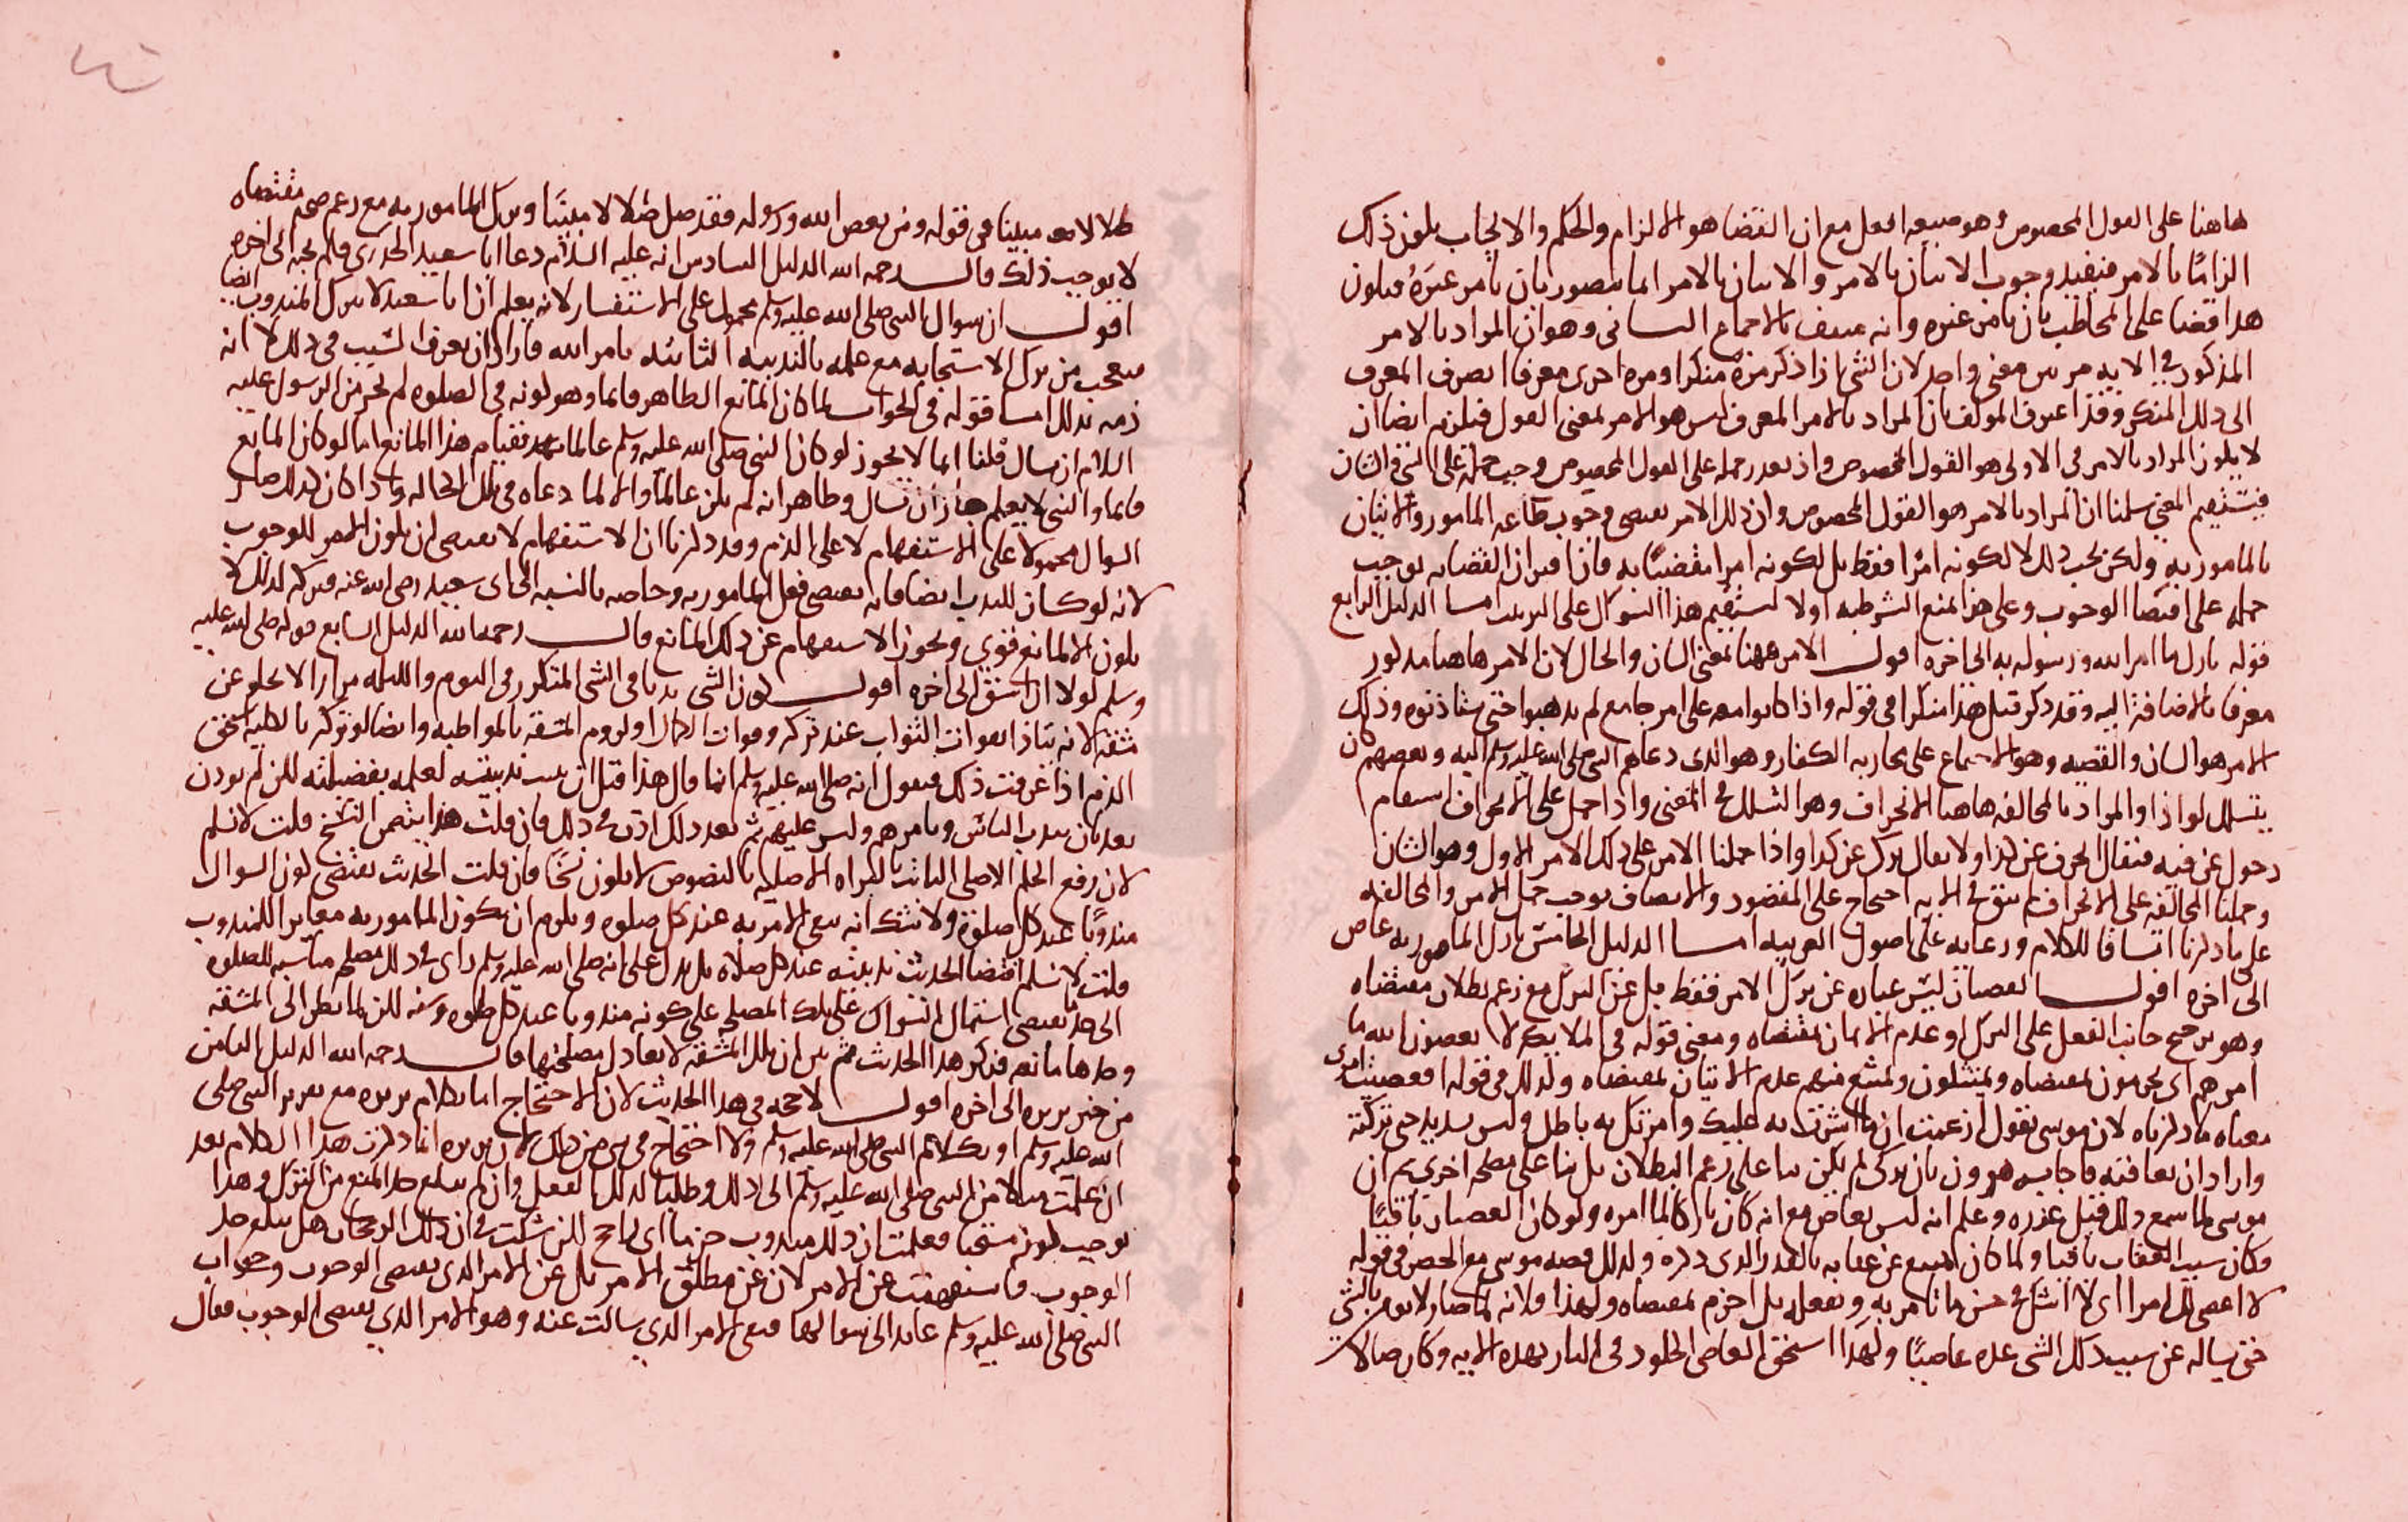 هاهنا على القول المخصوص وهو صيغه افعل مع ان القضا هو الالزام والحكم والايجاب يكون ذلك
الزامًا بالامر فيفيد وجوب الاتيان بالامر والاتيان بالامر انما يتصور بان يامر غيره فيكون
هذا قضا على المخاطب بان يامر غيره وانه منتف بالاجماع الثاني وهو ان المراد بالامر
المذكور في الايه مرتين معنى واحد لان الشي اذا ذكر مرة منكرا ومره اخرى معرفا انصرف المعرف
الى ذلك المنكر وقد اعترف المولف بان المراد بالامر المعرف ليس هو الامر بمعنى القول فيلزم ايضا ان
لا يكون المراد بالامر في الاولى هو القول المخصوص واذ تعذر حمله على القول المخصوص وجب حمله على الشي والشان
فيستقيم المعنى سلمنا ان المراد بالامر هو القول المخصوص وان ذلك الامر يقتضي وجوب طاعه المامور والاتيان
بالمامور به ولكن يجب ذلك لا لكونه امرًا فقط بل لكونه امرا مقضيًا به فاذا قيل ان القضا به يوجب
حمله على اقتضا الوجوب وعلى هذا المنع الشرطيه اولا يستقيم هذا السوال على الترتيب اما الدليل الرابع
قوله تارك ما امر الله ورسوله به الى اخره اقول الامر ههنا بمعنى الشان والحال لان الامر هاهنا مذكور
معرفا بالاضافة اليه وقد ذكر قبل هذا منكرا في قوله واذا كانوا معه على امر جامع لم يذهبوا حتى يستاذنوه وذلك
الامر هو الشان والقصه وهو الاجتماع على محاربه الكفار وهو الذي دعاهم النبي صلى الله عليه وسلم اليه وبعضهم كان
يتسلل لواذا والمراد بالمخالفه هاهنا الانحراف وهو التسلل في المعنى واذا حمل على الانحراف استقام
دخول عن فيه فيقال انحرف عن كذا ولا يقال ترك عن كذا واذا حملنا الامر على ذلك الامر الاول وهو الشان
وحملنا المخالفه على الانحراف لم يبق في الايه احتجاج على المقصود والانصاف يوجب حمل الامر والمخالفه
على ما ذكرنا اتساقا للكلام ورعايه على اصول العربيه اما الدليل الخامس تارك المامور به عاص
الى اخره اقول العصيان ليس عباره عن ترك الامر فقط بل عن الترك مع زعم بطلان مقتضاه
وهو ترجيح جانب الفعل على الترك او عدم الايمان بمقتضاه ومعنى قوله في الملايكه لا يعصون الله ما
امرهم اي يجزمون بمقتضاه ويمتثلون ويمتنع منهم عدم الاتيان بمقتضاه وكذلك في قوله افعصيت امري
معناه ما ذكرناه لان موسى يقول ازعمت ان ما اشرت به عليك وامرتك به باطل وليس بسديد حتى تركته
واراد ان يعاقبه فاجابه هرون بان تركي لم يكن بنا على زعم البطلان بل بنا على مصلحه اخرى ثم ان
موسى لما سمع ذلك قبل عذره وعلم انه ليس بعاص مع انه كان تاركا لما امره ولو كان العصيان باقيًا
فكان سبب العقاب باقيا ولما كان امتنع عن عقابه بالعذر الذي ذكره وكذلك قصه موسى مع الخضر في قوله
لا اعصي لك امرا اي لا اشك في حسن ما تامر به وتفعله بل اجزم بمقتضاه ولهذا فلانه لما صار لا يومن بالشي
حتى يساله عن سبب ذلك الشي عده عاصيًا ولهذا استحق العاصي الخلود في النار بهذه الايه وكان ضالا
ضلالا مبينا في قوله ومن يعص الله ورسوله فقد ضل ضلالا مبينًا وترك المامور به مع زعم صحه مقتضاه
لا يوجب ذلك قال رحمه الله الدليل السادس انه عليه السلام دعا ابا سعيد الخدري فلم يجبه الى اخره
اقول ان سوال النبي صلى الله عليه وسلم محمول على الاستفسار لانه يعلم ان ابا سعيد لا يترك المندوب ايضا
فتعجب من ترك الاستجابه مع علمه بالندبيه الثابته بامر الله فاراد ان يعرف السبب في ذلك لا انه
ذمه بذلك اما قوله في الجواب لما كان المانع الظاهر قايما وهو كونه في الصلوه لم يجز من الرسول عليه
السلام ان يسال قلنا انما لا يجوز لو كان النبي صلى الله عليه وسلم عالما بقيام هذا المانع اما لو كان المانع
قايما والنبي لا يعلم جاز ان يسال وظاهر انه لم يكن عالما والا لما دعاه في تلك الحاله واذا كان كذلك صار
السوال محمولا على الاستفهام لا على الذم وقد ذكرنا ان الاستفهام لا يقتضي ان يكون الامر للوجوب
لانه لو كان للندب ايضا فانه يقتضي فعل المامور به وخاصه بالنسبه الى ابي سعيد رضي الله عنه فتركه لذلك لا
يكون الا لمانع قوي ويجوز الاستفهام عن ذلك المانع قال رحمه الله الدليل السابع قوله صلى الله عليه
وسلم لولا ان اشق الى اخره اقول كون الشي ندبا في الشي المتكرر في اليوم والليله مرارا لا يخلو عن
مشقه لانه يتاذى بفوات الثواب عند تركه وفوات الكمال او لزوم المشقه بالمواظبه وايضا لو تركه بالكليه استحق
الذم اذا عرفت ذلك فنقول انه صلى الله عليه وسلم انما قال هذا قبل ان يثبت ندبيته لعلمه بفضيلته لكن لم يوذن
بعد بان يندب الناس ويامرهم وليس عليهم ثم بعد ذلك اذن في ذلك فان قلت هذا يتضمن النسخ قلت لا نسلم
لان رفع الحكم الاصلي الثابت بالبراه الاصليه بالنصوص لا يكون نسخًا فان قلت الحديث يقتضي كون السوال
مندوبًا عند كل صلوة ولا شك انه نفى الامر به عند كل صلوه ويلزم ان يكون المامور به مغايرا للمندوب
قلت لا نسلم اقتضا الحديث ندبيته عند كل صلاه بل يدل على انه صلى الله عليه وسلم راى في ذلك مصلحه مناسبه للصلوه
الى حد ما يقتضي استعمال السواك على تلك المصلحه على كونه مندوبا عند كل صلوه وسنه لكن لما نظر الى المشقه
وجدها مانعه فذكر هذا الحديث ثم بين ان تلك المشقه لا تعادل مصلحتها قال رحمه الله الدليل الثامن
من خبر بريره الى اخره اقول لا حجه في هذا الحديث لان الاحتجاج اما بكلام بريره مع تقرير النبي صلى
الله عليه وسلم او بكلام النبي صلى الله عليه وسلم ولا احتجاج في شي من ذلك لان بريره انما ذكرت هذا الكلام بعد
ان علمت ميلا من النبي صلى الله عليه وسلم الى ذلك وطلبا لذلك الفعل وان لم يبلغ حد المنع من الترك وهذا
يوجب كونه مستحبا فعلمت ان ذلك مندوب جزما اي راجح لكن شكت في ان ذلك الرجحان هل يبلغ حد
الوجوب فاستفهمت عن الامر لا عن مطلق الامر بل عن الامر الذي يقتضي الوجوب وجواب
النبي صلى الله عليه وسلم عايد الى سوالها فنفى الامر الذي سالت عنه وهو الامر الذي يقتضي الوجوب فقال